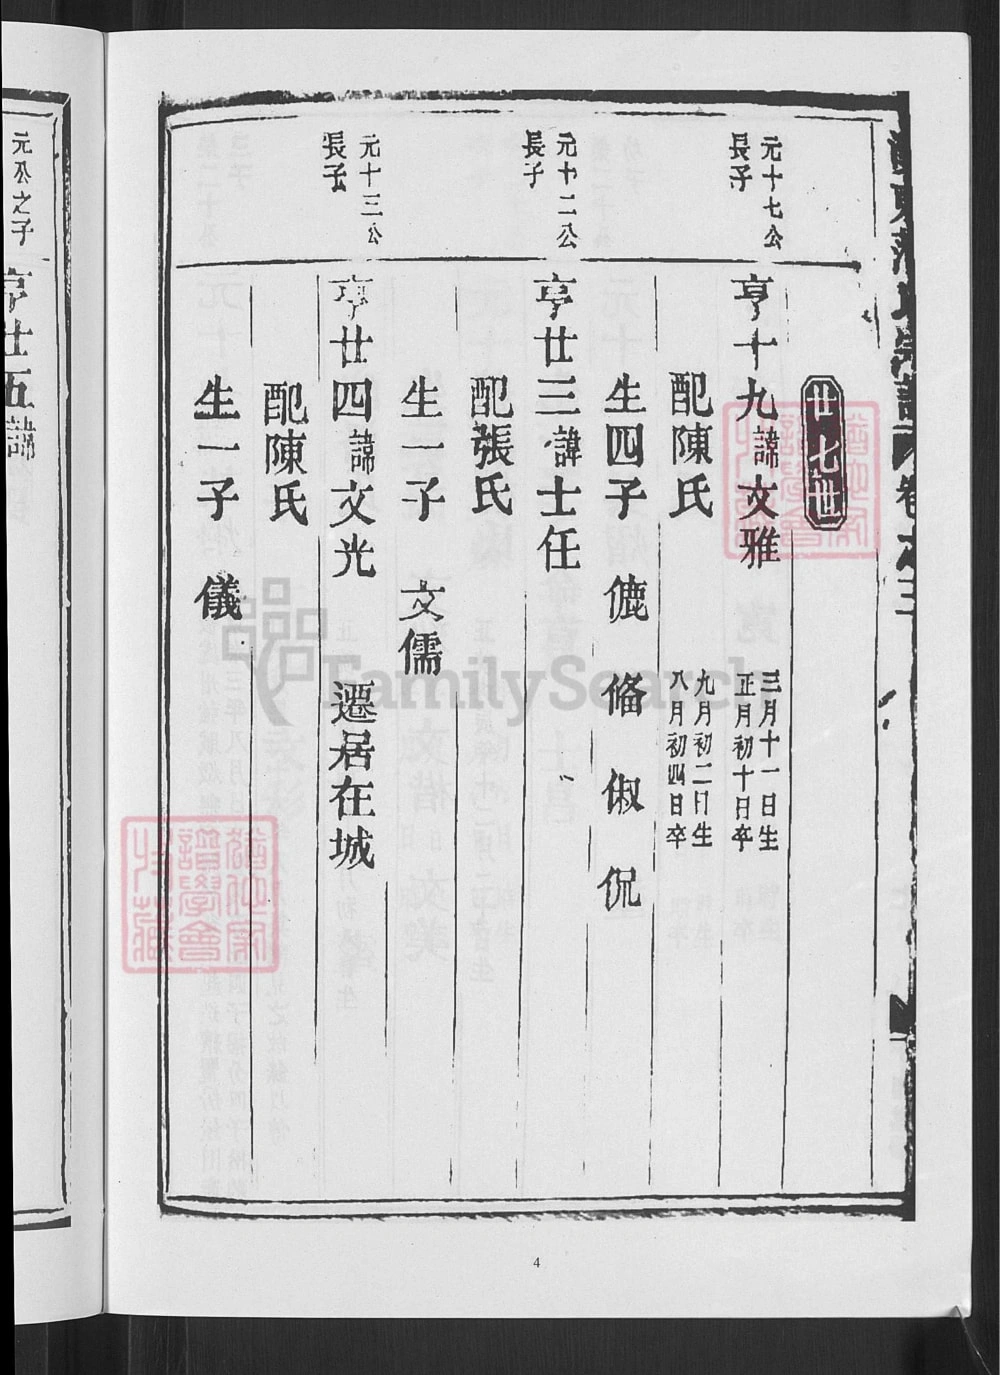 廿七世
元十七公
長子
亨十九諱文雅
三月十一日生
正月初十日卒
配陳氏
九月初二日生
八月初四日卒
生四子 儦 俻 俶 侃
元十二公
長子
亨廿三諱士任
配張氏
生一子 文儒
元十三公
長子
亨廿四諱文光 遷居在城
配陳氏
生一子 儀
元公之子
亨廿五諱
FamilySearch
4